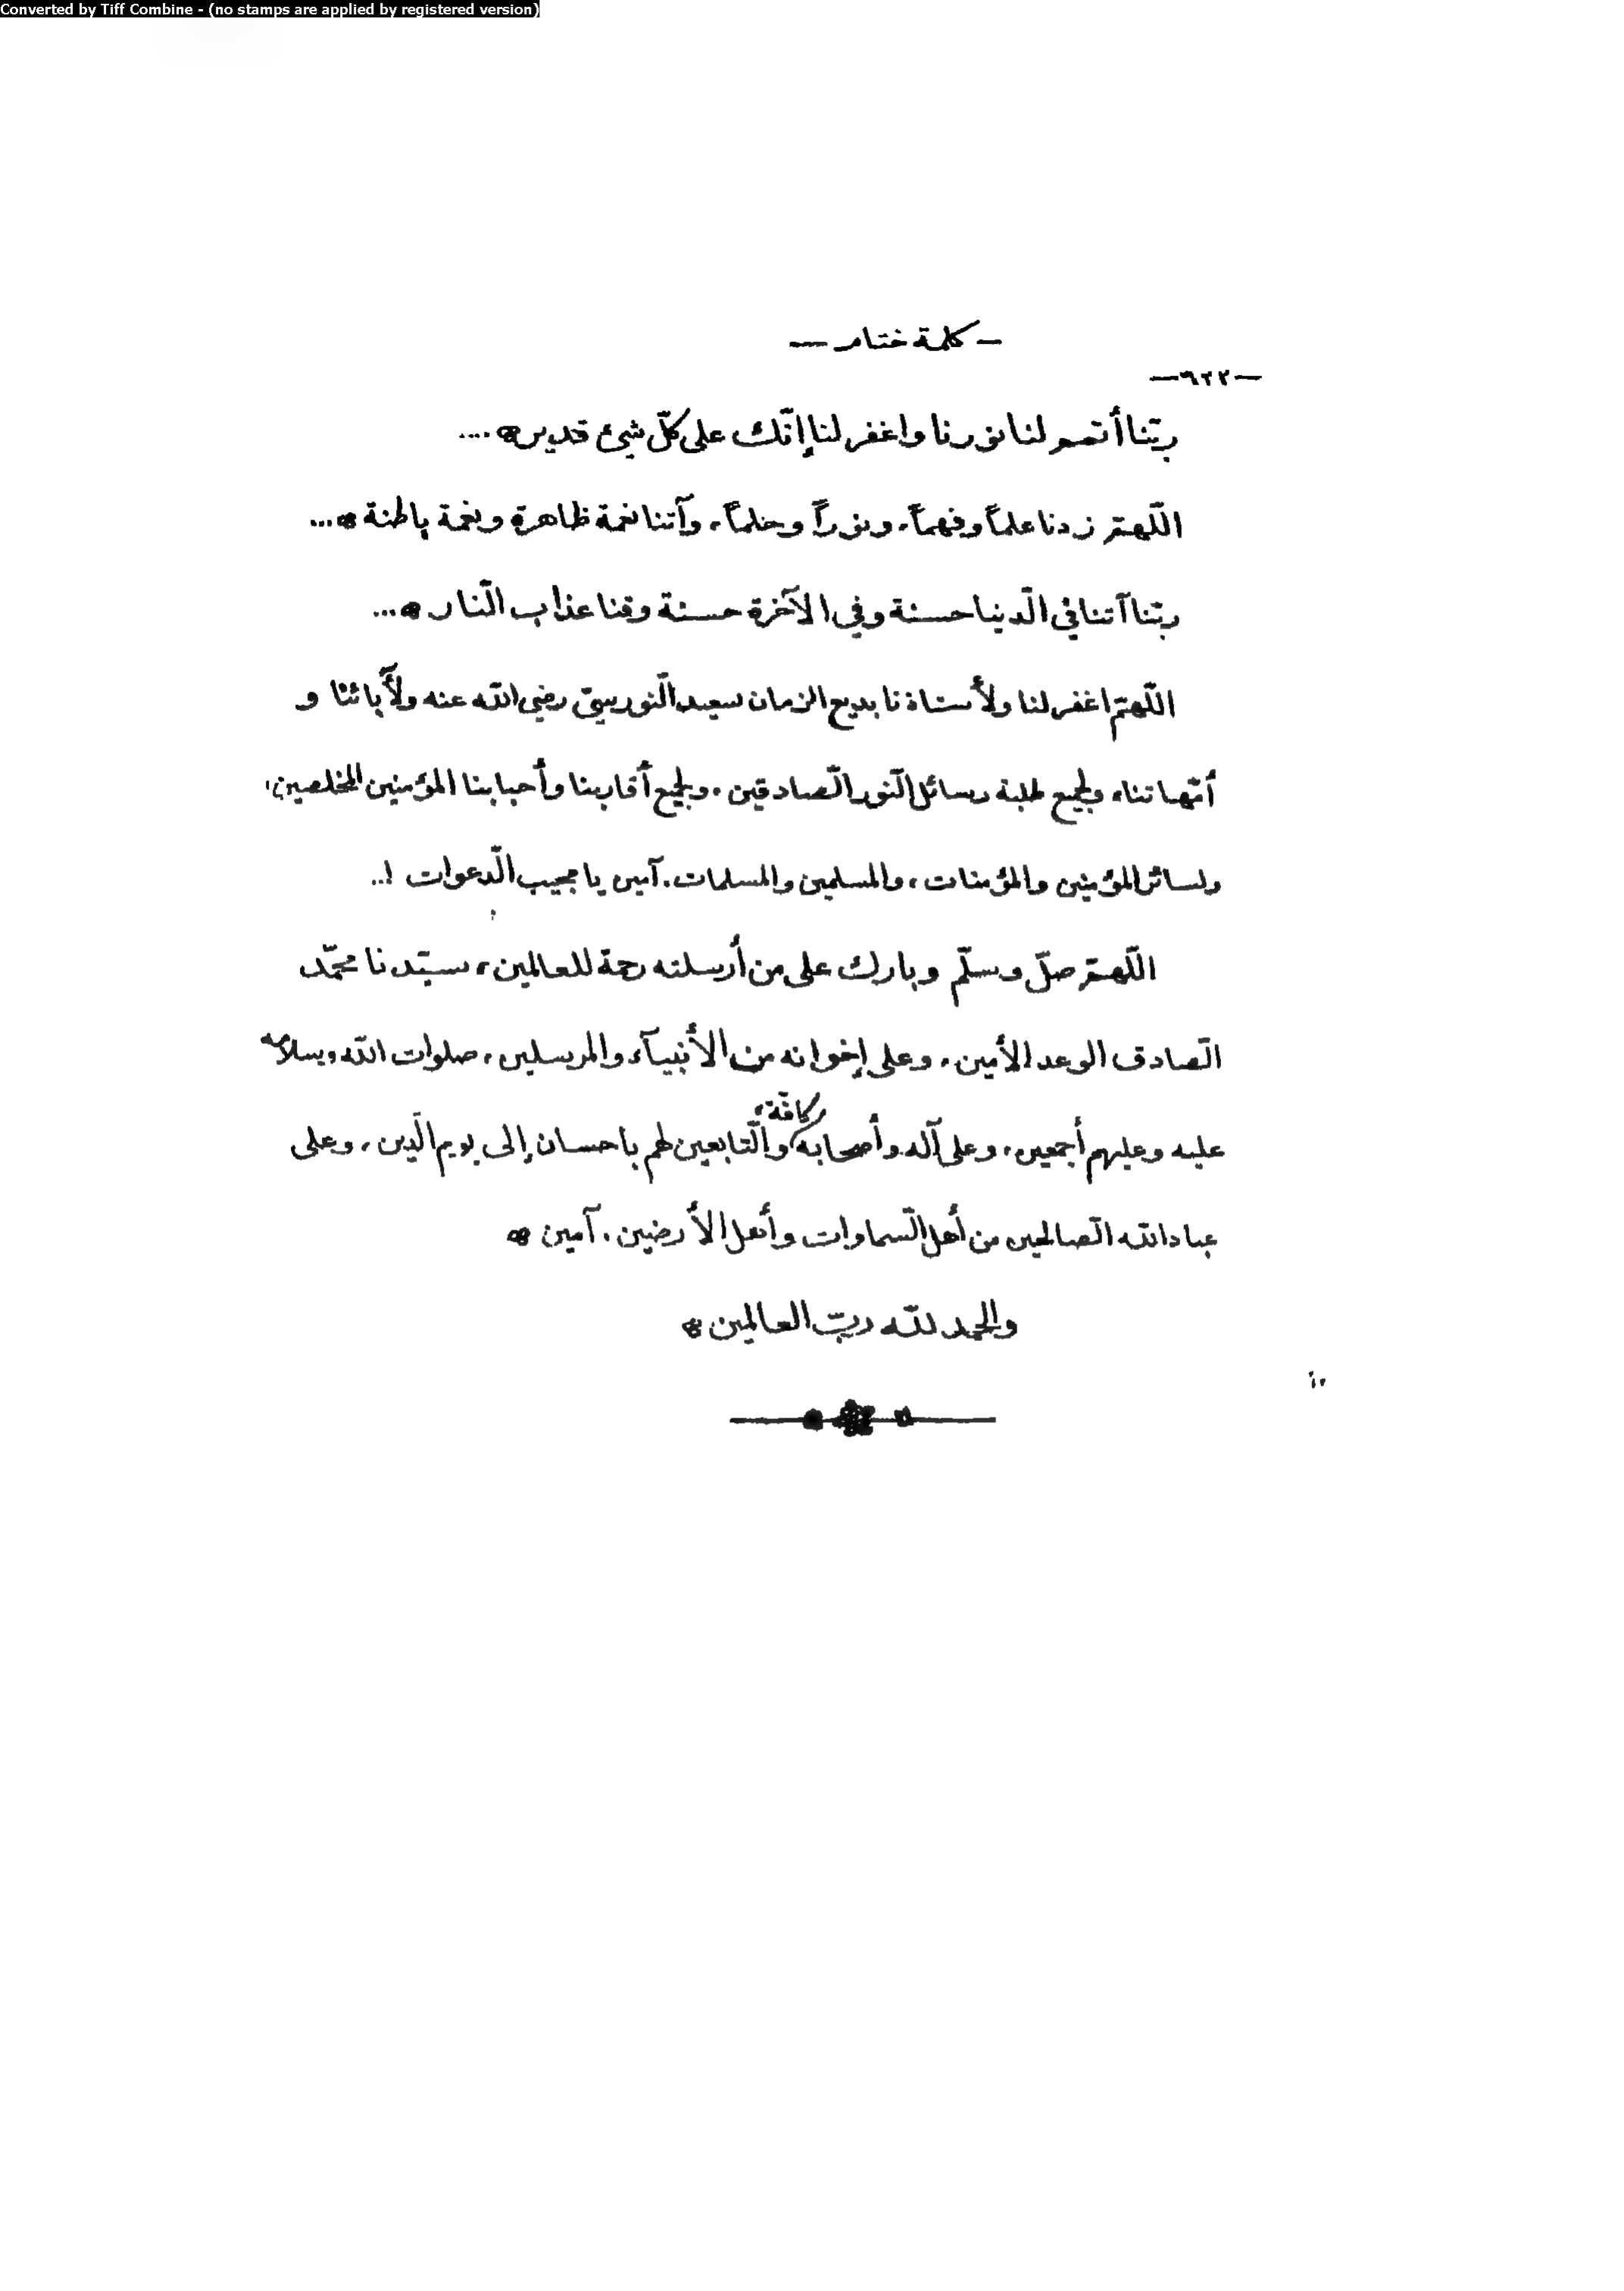 Converted by Tiff Combine - (no stamps are applied by registered version)
— كلمة ختام —
—٦٢٢—
ربّنا أتمم لنا نورنا واغفر لنا إنّك على كلّ شيئ قدير ....
اللّهمّ زدنا علماً وفهماً، ونوراً وحلماً، وآتنا نعمة ظاهرة ونعمة باطنة ...
ربّنا آتنا في الّدنيا حسنة وفي الآخرة حسنة وقنا عذاب الّنار ...
اللّهمّ اغفر لنا ولأستاذنا بديع الزمان سعيد الّنورسيّ رضي الله عنه ولأبائنا و
أمّهاتنا، ولجميع طلبة رسائل الّنور الّصادقين، ولجميع أقاربنا وأحبابنا المؤمنين المخلصين،
ولسائر المؤمنين والمؤمنات، والمسلمين والمسلمات. آمين يا مجيب الّدعوات !..
اللّهمّ صلّ وسلّم وبارك على من أرسلته رحمة للعالمين، سيّدنا محمّد
الّصادق الوعد الأمين، وعلى إخوانه من الأنبيآء والمرسلين، صلوات الله وسلامه
عليه وعليهم أجمعين، وعلى آله وأصحابه كافّة، والّتابعين لهم باحسان إلى يوم الّدين، وعلى
عباد الله الّصالحين من أهل الّسماوات وأهل الأرضين. آمين
والحمد لله ربّ العالمين